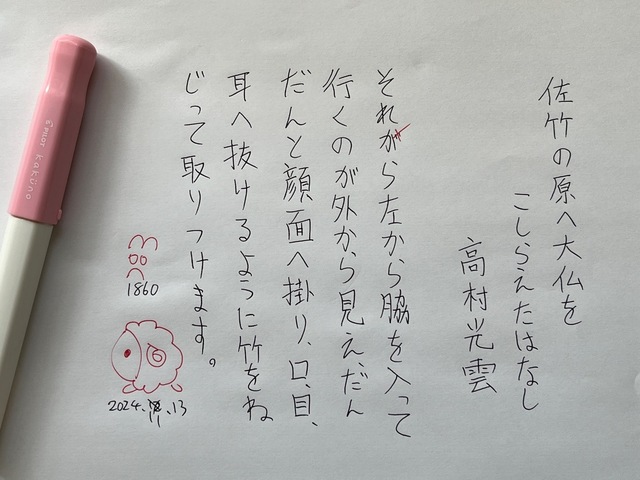 佐竹の原へ大仏を
こしらえたはなし
高村光雲
それから左から脇を入って
行くのが外から見え、だん
だんと顔面へ掛り、口、目、
耳へ抜けるように竹をね
じって取りつけます。
1860
2024.11.13
PILOT kakuno